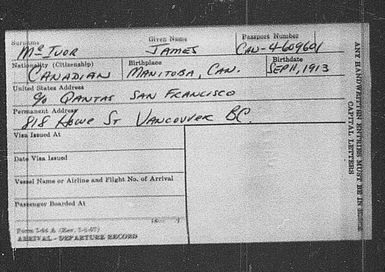 Surname Given Name Passport Number
McIvor JAMES CAN-4609601
Nationality (Citizenship) Birthplace Birthdate
CANADIAN MANITOBA, CAN. SEP 11, 1913
United States Address
c/o QANTAS SAN FRANCISCO
Permanent Address
818 HOWE ST VANCOUVER BC.
Visa Issued At
Date Visa Issued
Vessel Name or Airline and Flight No. of Arrival
Passenger Boarded At
Form I-94 A (Rev.
ARRIVAL - DEPARTURE RECORD
ANY HANDWRITTEN ENTRIES MUST BE IN BLOCK
CAPITAL LETTERS